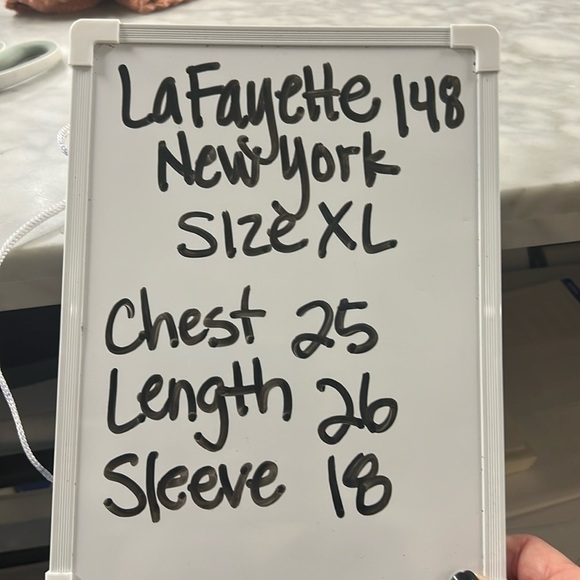 LaFayette 148
New York
Size XL
Chest 25
Length 26
Sleeve 18